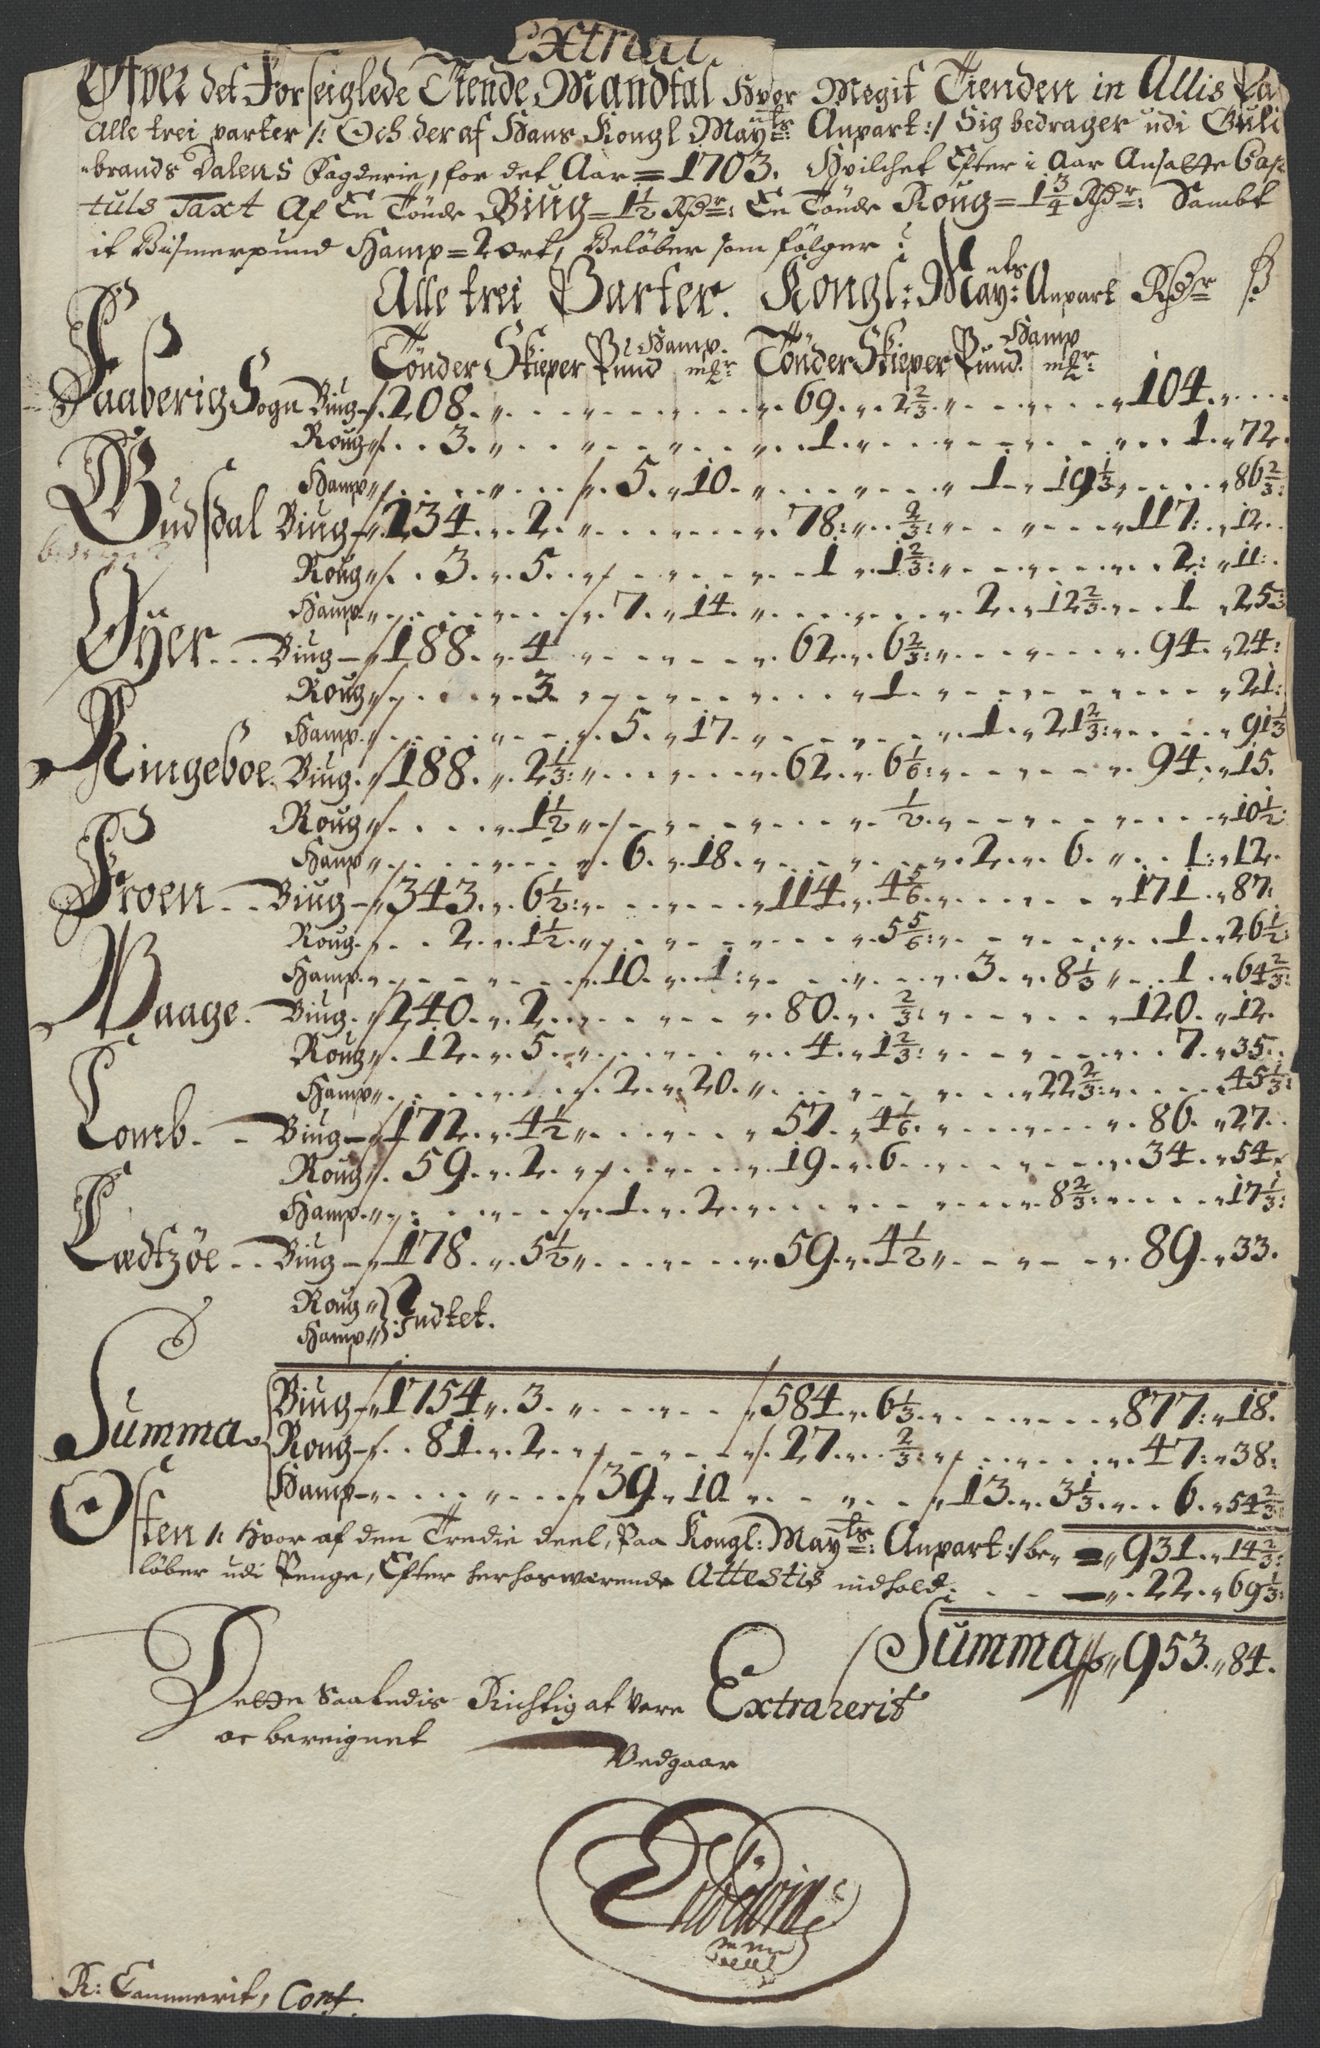 Extract
Ofver det Forseiglede Tiende Mandtal Hvor Megit Tienden in Allis
Alle trei parter /: Och der af Hans Kongl Mayts: Anpart :/ Sig bedrager udi Guli
brands Dalens Fogderie, for det Aar = 1703. Hvilchet Efter i Aar Ansatte Cap
tuls Taxt Af En Tønde Biug = 1½ Rdr: En Tønde Roug = 1¾ Rdr: Sambt
it Bismerpund Hamp = 2 ort, Beløber som følger
Alle trei Parter. Kongl: Mayts: Anpart Rdr ß
Hamp. Hamp
Tønder Skieper Pund mkr Tønder Skieper Pund. mkr
Faaberig Sogn Biug 208. 69. 2⅔ 104.
Roug 3. 1. 1. 72.
Hamp 5. 10. 1 19⅓ 86⅔:
Gudsdal Biug 234. 2. 78: ⅔: 117: 12.
Roug 3. 5. 1 1⅔: 2: 11:
Hamp 7. 14. 2. 12⅔ 1 25⅓
Öÿer Biug 188. 4 62. 6⅔: 94. 24:
Roug 3 1 21:
Hamp 5. 17. 1. 21⅔: 91⅓
Ringeboe. Biug. 188. 2⅓: 62. 6⅙: 94. 15.
Roug 1½ ½ 10½
Hamp 6. 18. 2. 6. 1: 12.
Froen Biug 343. 6½: 114. 4⅚ 171. 87:
Roug. 2. 1½. 5⅚: 1. 26½:
Hamp. 10. 1: 3. 8⅓ 1 64⅔:
Vaage. Biug. 240. 2. 80. ⅔: 120. 12.
Roug 12. 5. 4. 1⅔: 7. 35.
Hamp 2. 20. 22⅔: 45⅓:
Lomb. Biug 172. 4½ 57. 4⅙ 86. 27.
Roug 59. 2. 19. 6 34. 54
Hamp. 1. 2. 8⅔: 17⅓:
Lædtzøe Biug 178. 5½ 59. 4½ 89. 33.
Roug
Hamp Indtet.
Summa. Biug 1754. 3. 584. 6⅓. 877: 18.
Roug 81. 2. 27. ⅔: 47: 38:
Hamp 39. 10 13. 3⅓ 6. 54⅔:
Osten /: Hvor af den Tredie deel, Paa Kongl: Mayts: Anpart :/ be= 931. 14⅔:
løber udi Penge, Efter herhosværende Attestis indhold. 22. 69⅓:
Summa 953. 84.
Dette Saaledis Richtig at Vere Extraherit
oc bereignet
Vedgaar
R: Cammerit, Cont.